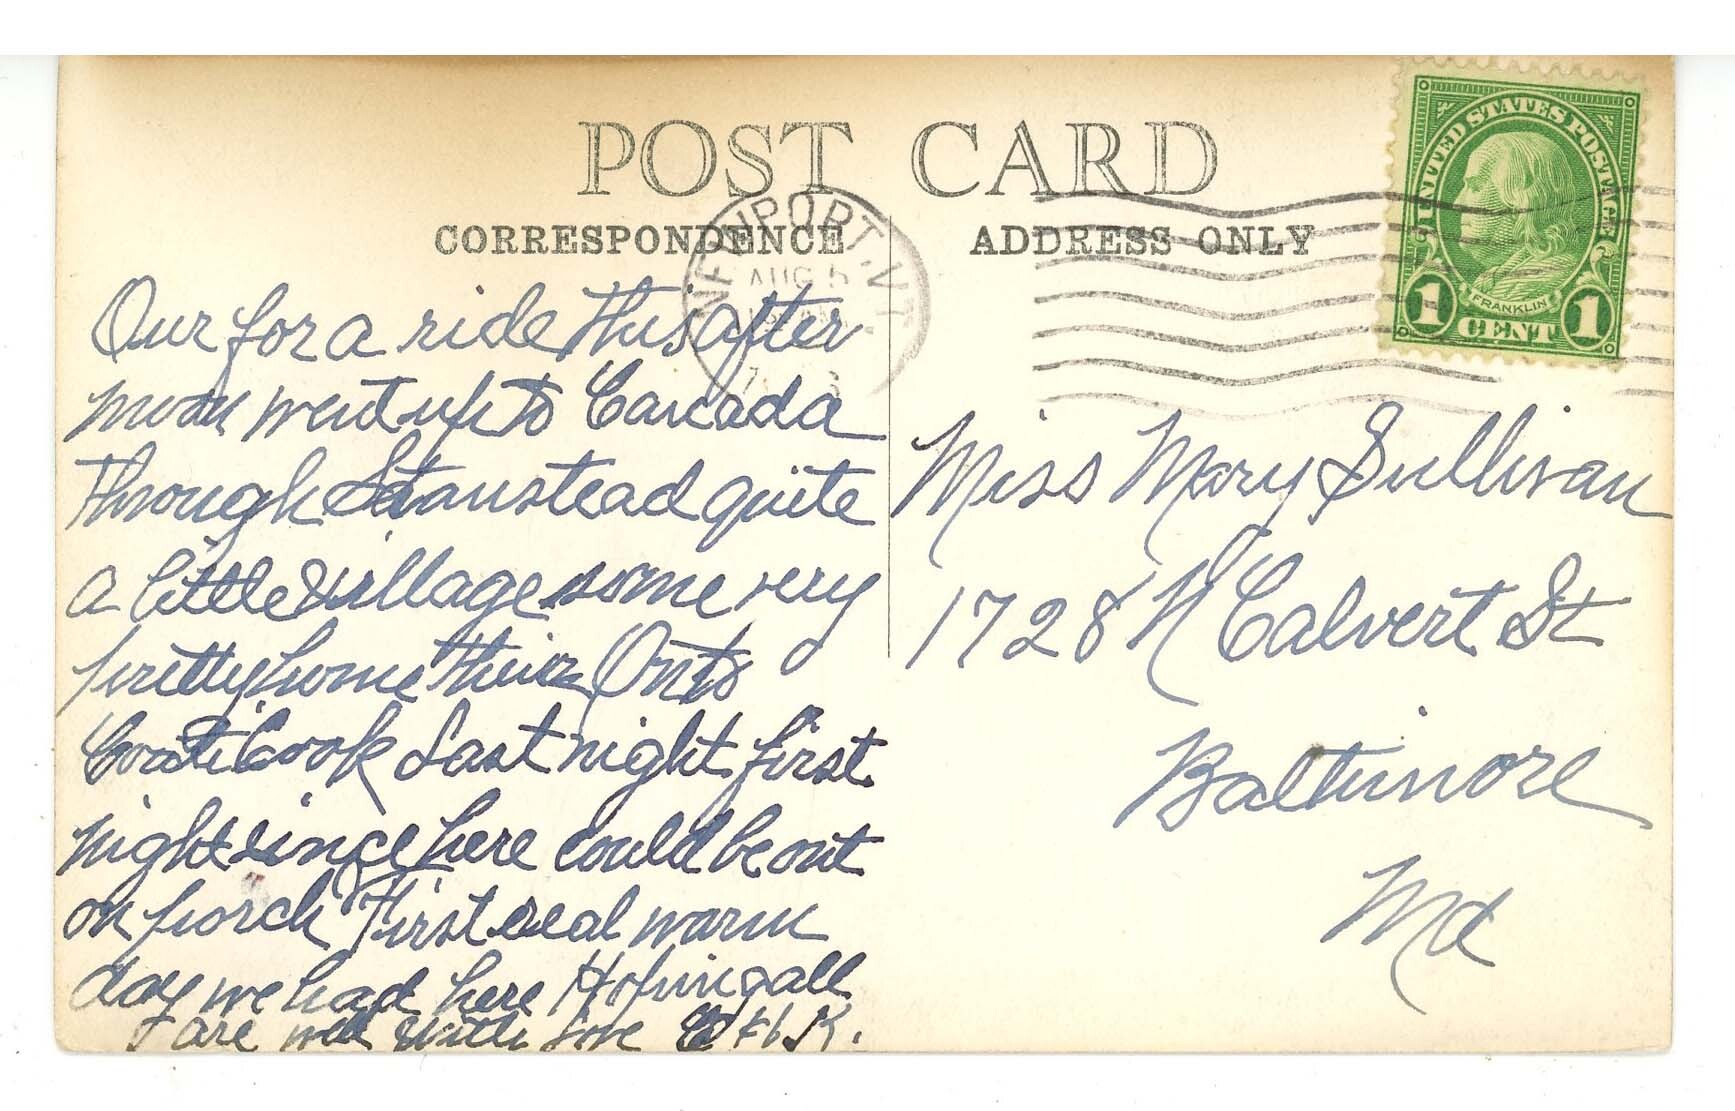 POST CARD
CORRESPONDENCE
ADDRESS ONLY
NEWPORT, VT
AUG 5
UNITED STATES POSTAGE
FRANKLIN
1 CENT 1
Our for a ride this after
noon went up to Canada
through Stanstead quite
a little village some very
pretty home their Onto
Coati Cook Last night first
night since here could be out
on porch First real warm
day we had here Hoping all
are well with love
Miss Mary Sullivan
1728 N Calvert St
Baltimore
Md